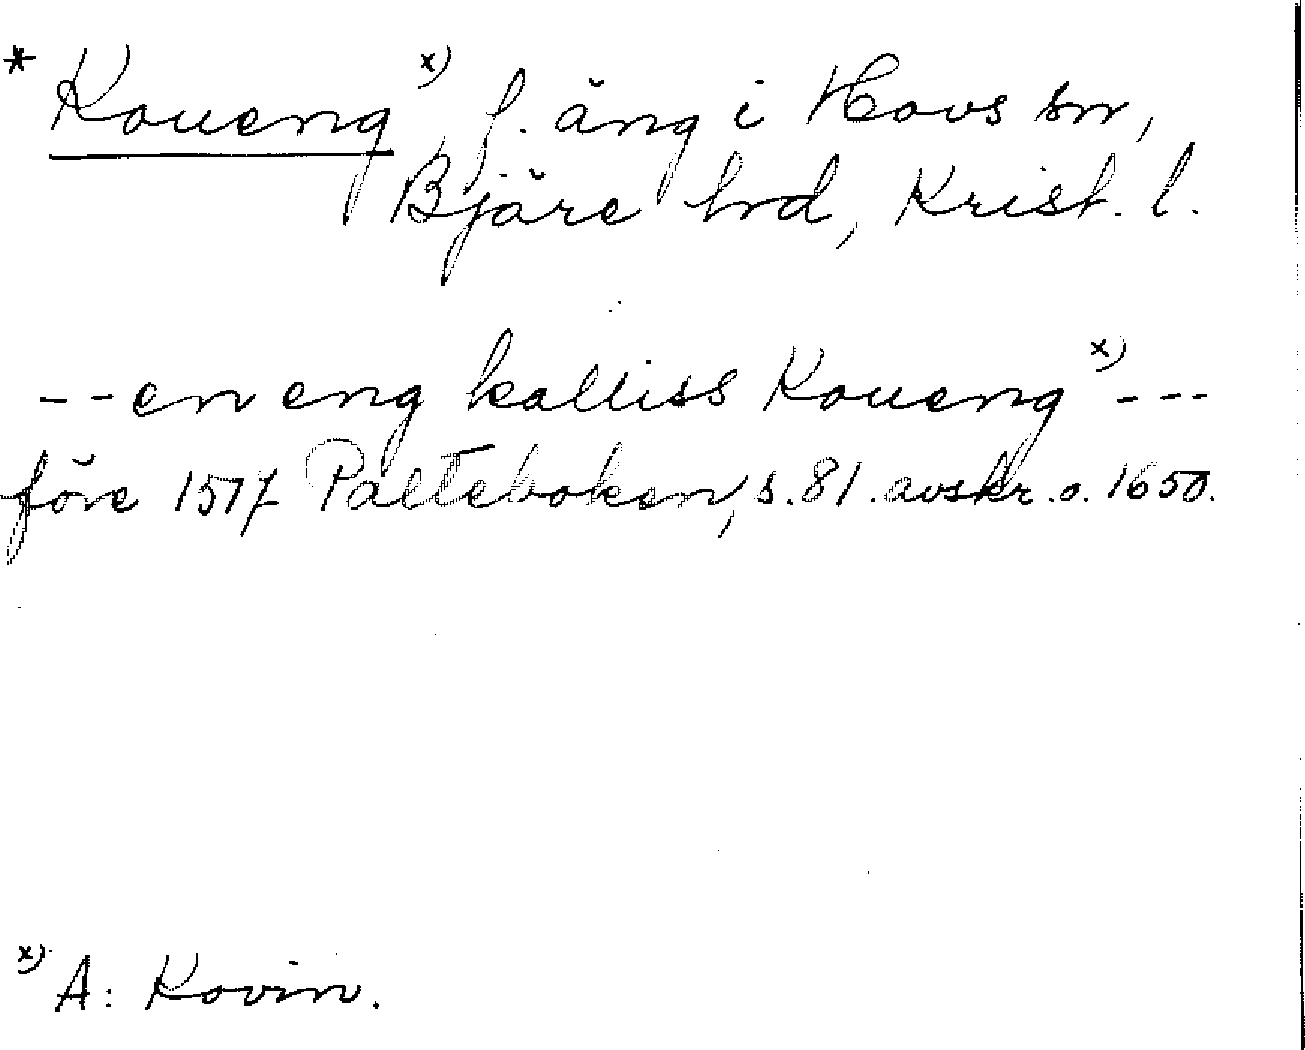 * Koueng x), f. äng i Hovs sn,
Bjäre hd, Krist. l.
-- en eng kalliss Koueng x) ---
före 1517 Palteboken, s. 81. avskr. o. 1650.
x) A: Kovin.